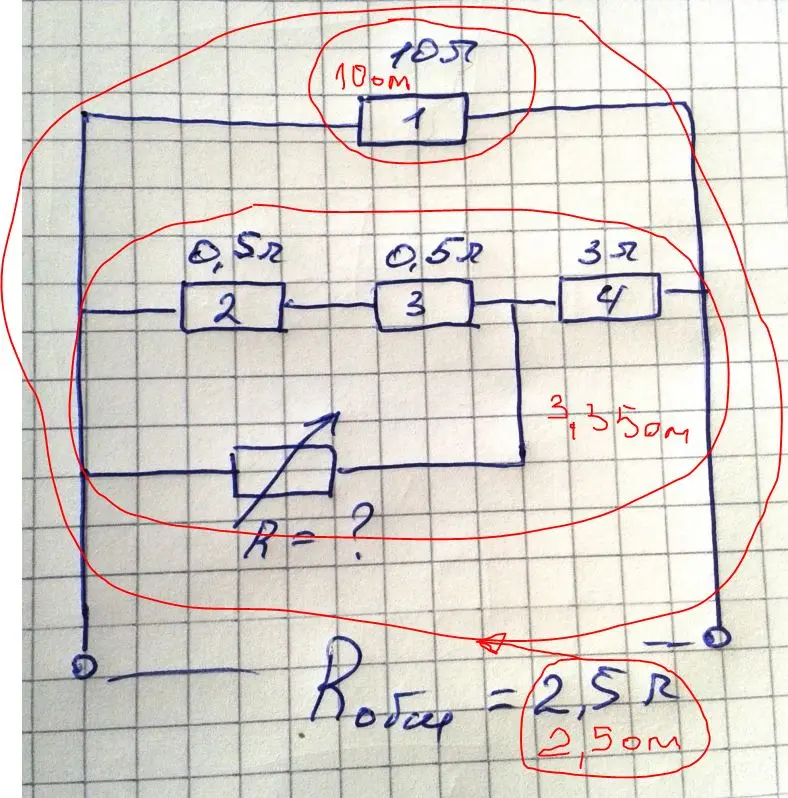 10Ω
10ом
1
0,5Ω 0,5Ω 3Ω
2 3 4
3,35ом
R = ?
Rобщ = 2,5Ω
2,5ом